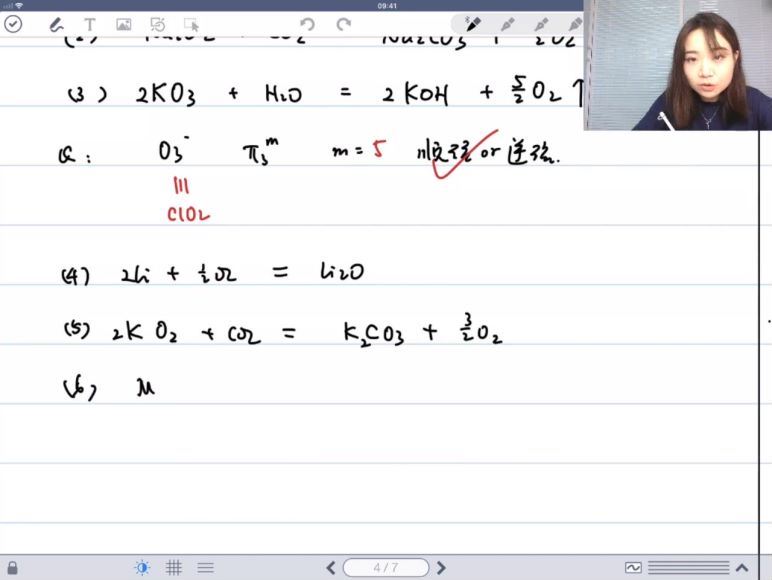 09:41
(3) 2KO3 + H2O = 2KOH + 5/2 O2 ↑
Q: O3⁻ π3^m m = 5 顺磁 or 逆磁.
|||
ClO2
(4) 2Li + 1/2 O2 = Li2O
(5) 2KO2 + CO2 = K2CO3 + 3/2 O2
(6) M
4 / 7